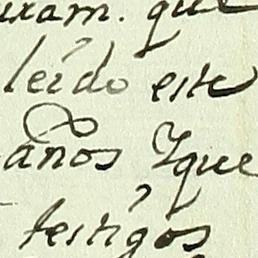 uram. que
leído este
años Yque
testigos